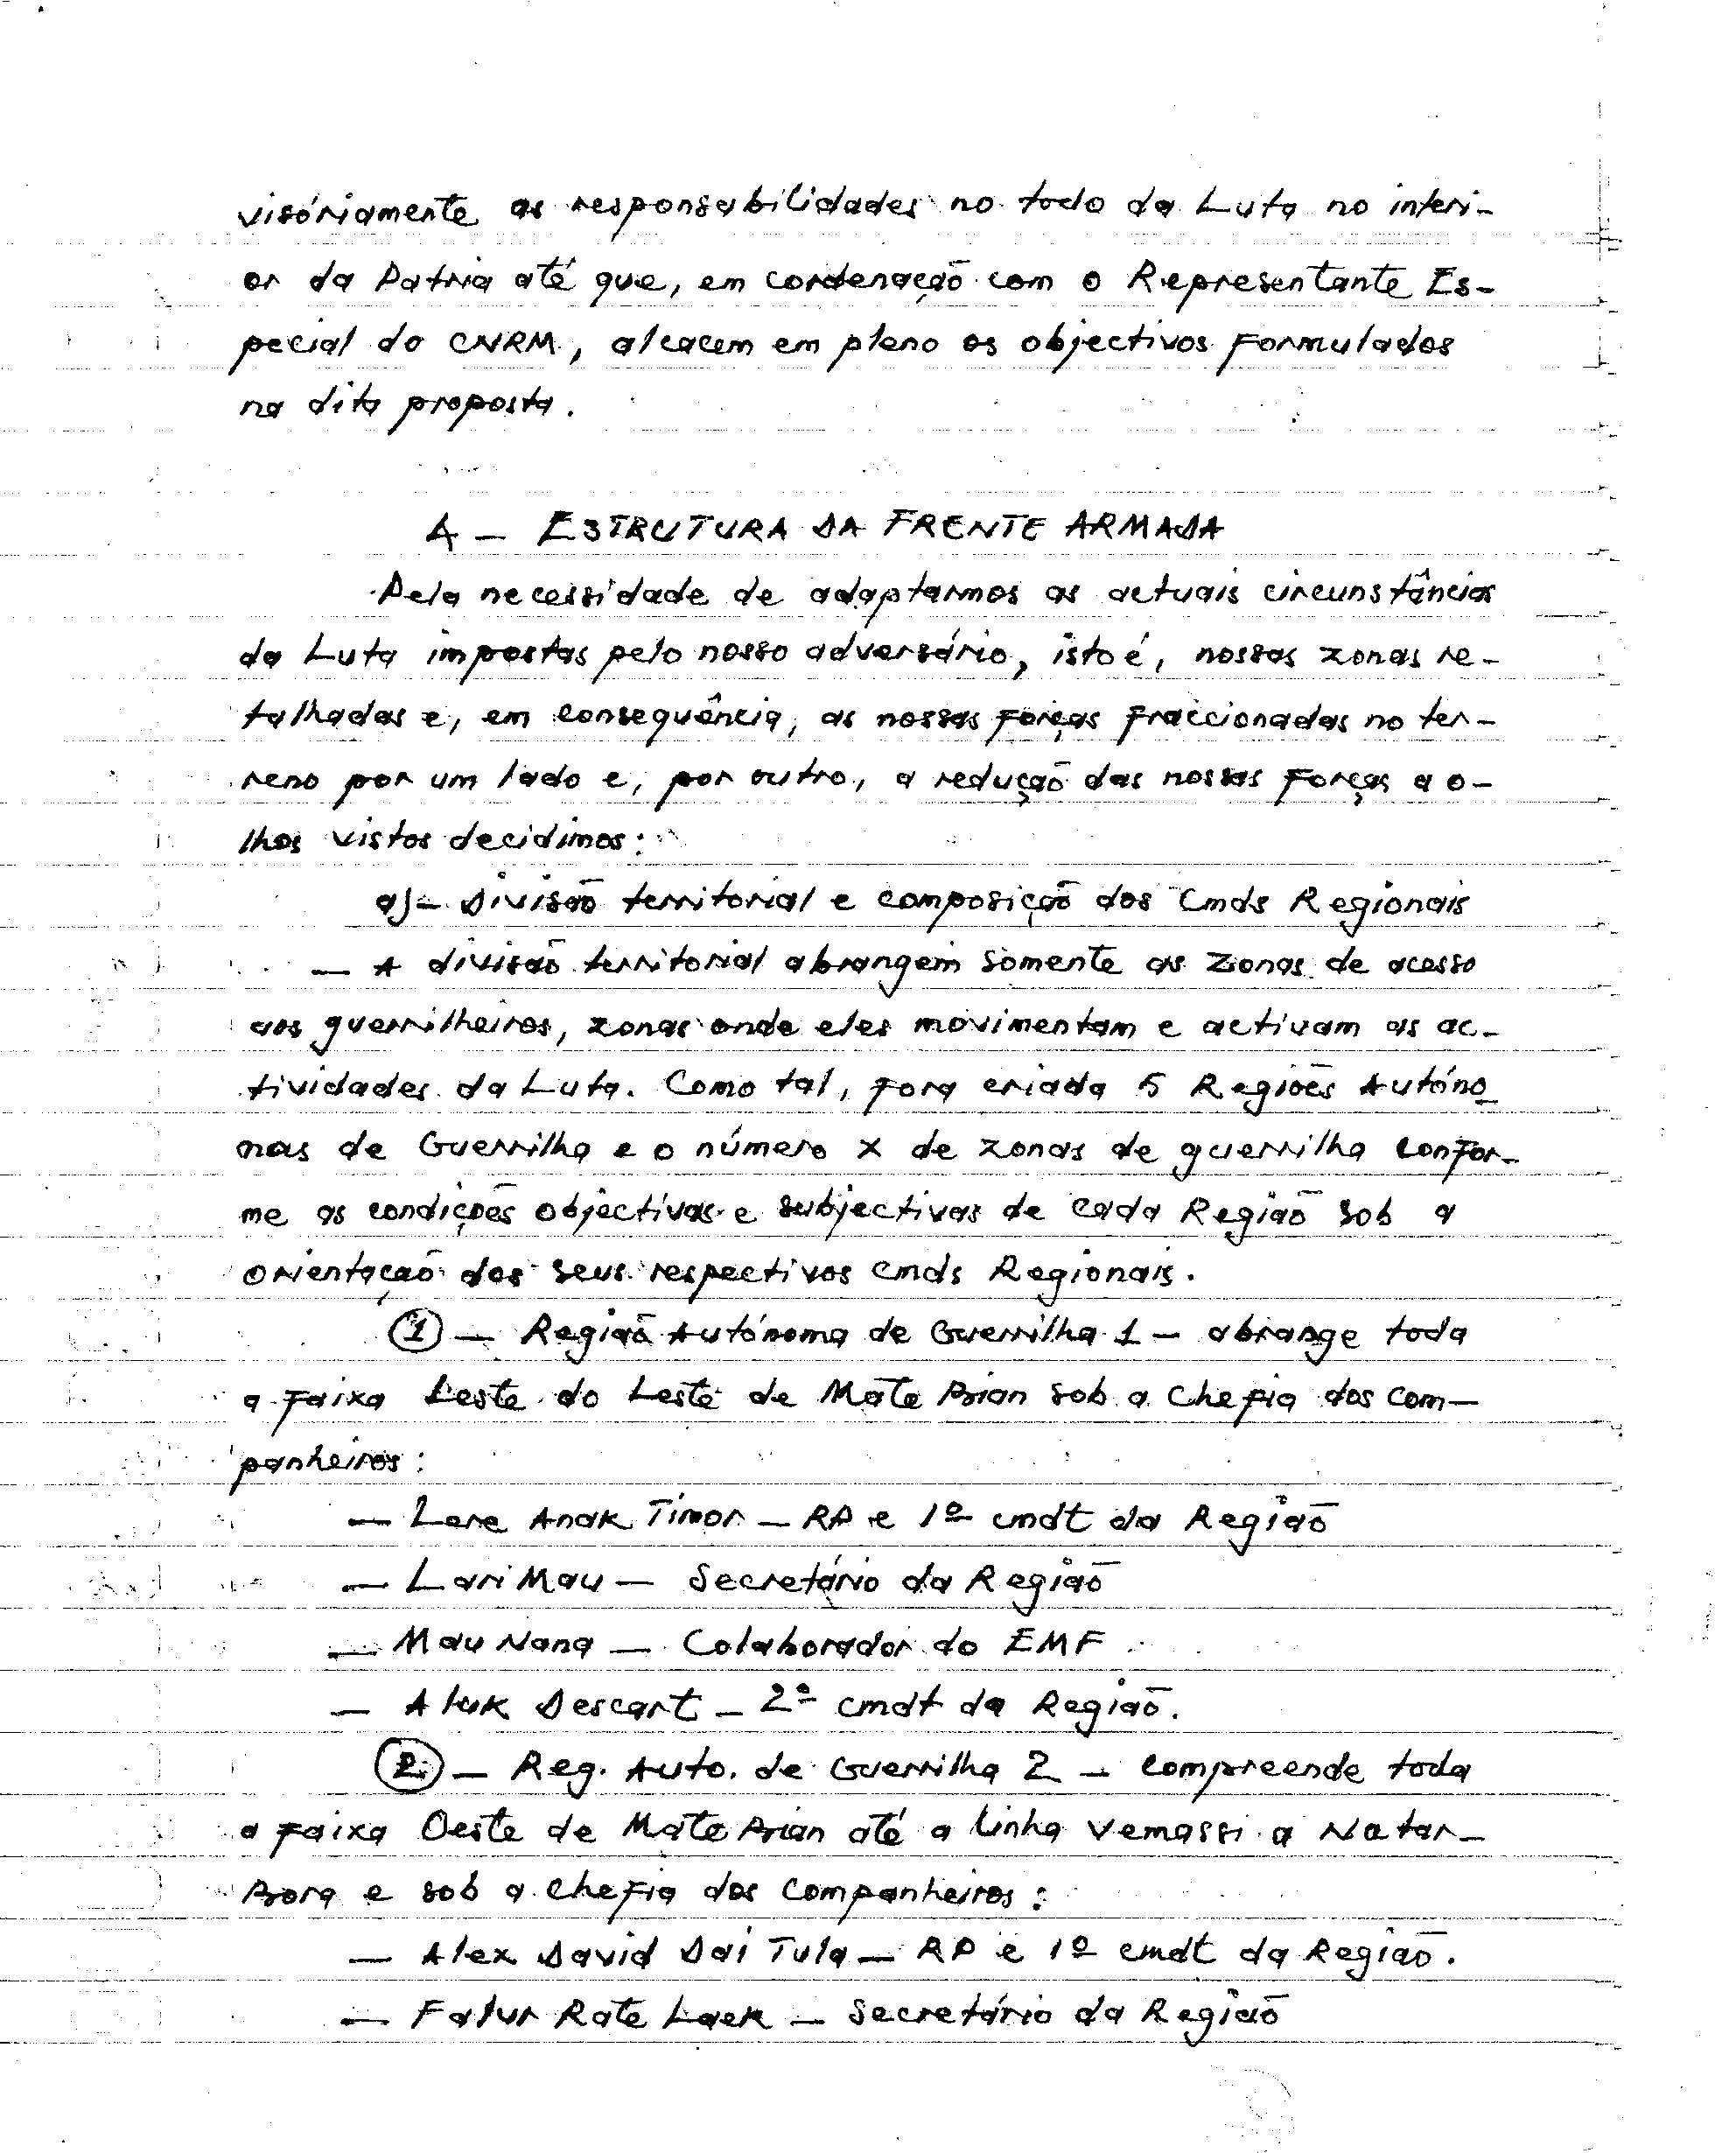 visóriamente as responsabilidades no todo da Luta no interi-
or da Patria até que, em cordenação com o Representante Es-
pecial do CNRM, alcacem em pleno os objectivos formulados
na dita proposta.
4 - ESTRUTURA DA FRENTE ARMADA
Pela necessidade de adaptarmos as actuais circunstâncias
da Luta impostas pelo nosso adversário, isto é, nossas zonas re-
talhadas e, em consequência, as nossas forças fraccionadas no ter-
reno por um lado e, por outro, a redução das nossas forças a o-
lhos vistos decidimos:
a)- Divisão territorial e composição dos Cmds Regionais
- A divisão territorial abrangem somente as zonas de acesso
aos guerrilheiros, zonas onde eles movimentam e activam as ac-
tividades da Luta. Como tal, fora criada 5 Regiões Autóno
mas de Guerrilha e o número X de zonas de guerrilha confor-
me as condições objectivas e subjectivas de cada Região sob a
orientação dos seus respectivos cmds Regionais.
① - Região Autónoma de Guerrilha 1 - abrange toda
a faixa Leste do Leste de Mate Brian sob a chefia dos com-
panheiros:
- Lere Anak Timor - RP e 1º cmdt da Região
- Lari Mau - Secretário da Região
- Mau Nana - Colaborador do EMF
- Aluk Descart - 2º cmdt da Região.
② - Reg. Auto. de Guerrilha 2 - compreende toda
a faixa Oeste de Mate Brian até a linha Vemassi a Natar-
Bora e sob a chefia dos companheiros:
- Alex David Dai Tula - RP e 1º cmdt da Região.
- Falur Rate Laek - Secretário da Região